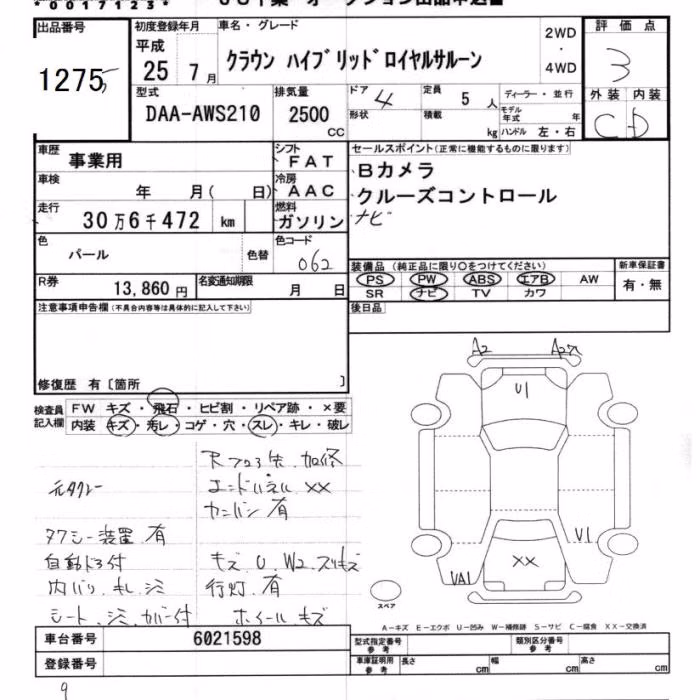 *00171123*
JU千葉 オークション出品申込書
出品番号
1275
初度登録年月
平成
25 7月
車名・グレード
クラウン ハイブリッドロイヤルサルーン
2WD
・
4WD
評価点
3
外装 内装
C D
型式
DAA-AWS210
排気量
2500
CC
ドア 4
定員 5人
形状
積載 kg
ディーラー・並行
モデル年式 年
ハンドル 左・右
車歴
事業用
シフト
FAT
車検
年 月( 日)
冷房
AAC
走行
30万6千472 km
燃料
ガソリン
セールスポイント(正常に機能するものに限ります)
Bカメラ
クルーズコントロール
ナビ
色
パール
色替
色コード
062
R券
13,860円
名変通知期限
月 日
装備品(純正品に限り○をつけてください)
PS PW ABS エアB AW
SR ナビ TV カワ
新車保証書
有・無
注意事項申告欄(不具合内容等は具体的に記入して下さい)
後日品
修復歴 有〔箇所 〕
検査員
記入欄
FW キズ・飛石・ヒビ割・リペア跡・×要
内装 キズ・汚レ・コゲ・穴・スレ・キレ・破レ
A2
U1
U1
XX
VA1
スペア
元タクシー
タクシー装置 有
自動ドア付
内バリ キレ シミ
シート シミ カバー付
エンドパネル XX
有
キズ U W2 スリキズ
行灯 有
ホイール キズ
A-キズ E-エクボ U-凹み W-補修跡 S-サビ C-腐食 XX-交換済
車台番号
6021598
登録番号
型式指定番号
参考
類別区分番号
参考
車庫証明用
参考
長さ cm
幅 cm
高さ cm
9